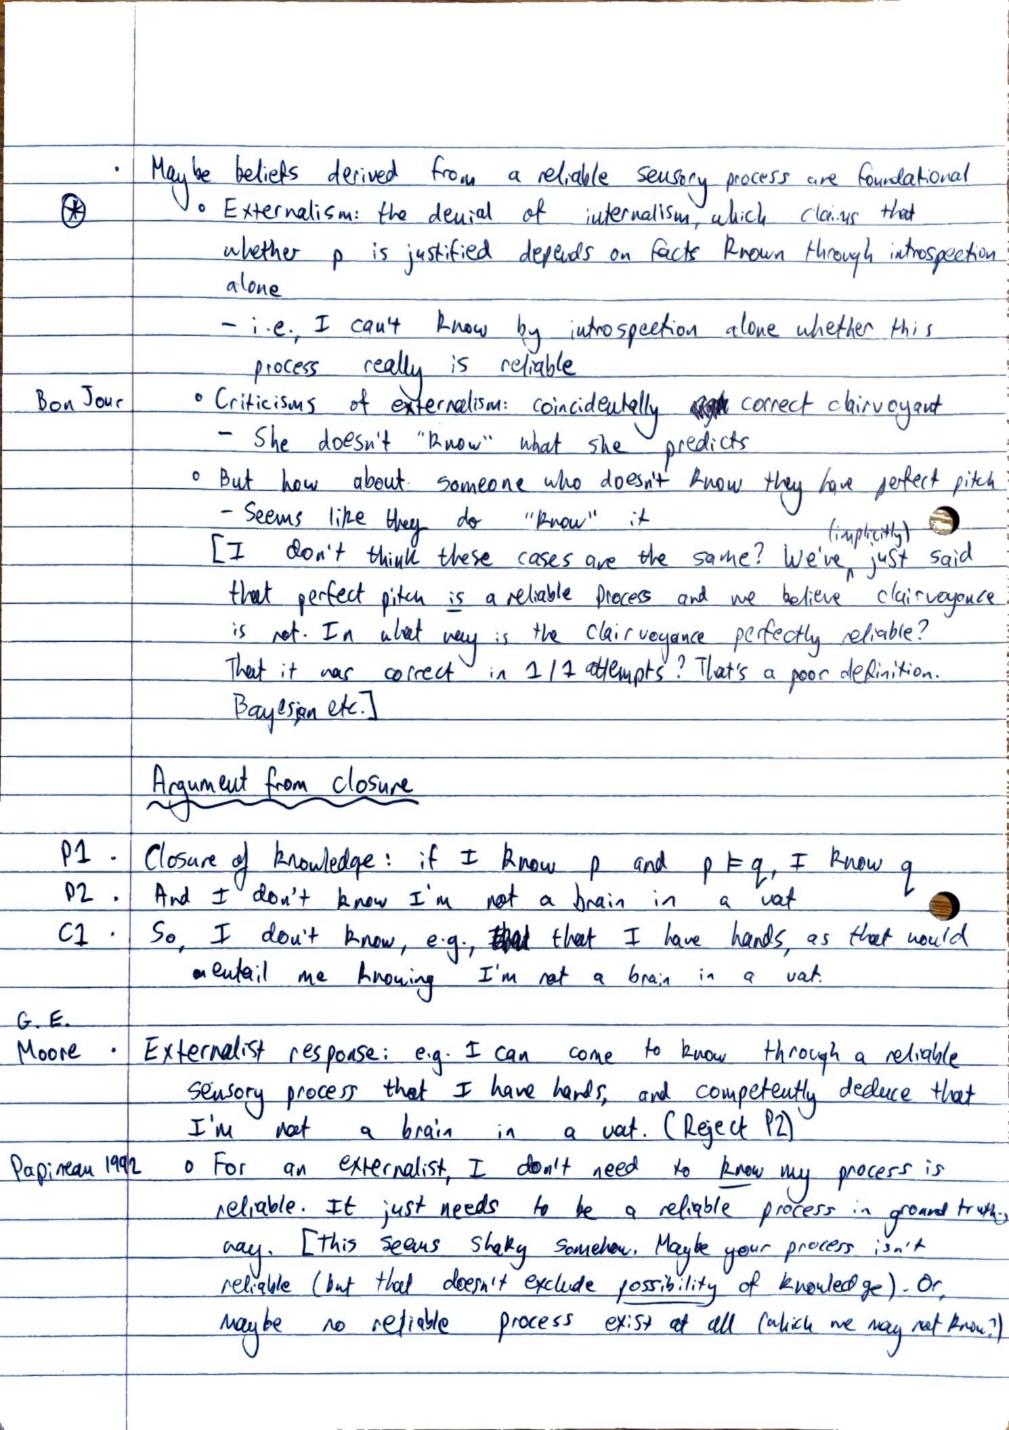 · Maybe beliefs derived from a reliable sensory process are foundational
⊛ ∘ Externalism: the denial of internalism, which claims that
whether p is justified depends on facts known through introspection
alone
– i.e., I can't know by introspection alone whether this
process really is reliable
Bon Jour ∘ Criticisms of externalism: coincidentally correct clairvoyant
– She doesn't "know" what she predicts
∘ But how about someone who doesn't know they have perfect pitch
– Seems like they do "know" it
(implicitly)
[I don't think these cases are the same? We've ^ just said
that perfect pitch is a reliable process and we believe clairvoyance
is not. In what way is the clairvoyance perfectly reliable?
That it was correct in 1/1 attempts? That's a poor definition.
Bayesian etc.]
Argument from closure
P1 · Closure of knowledge: if I know p and p ⊨ q, I know q
P2 · And I don't know I'm not a brain in a vat
C1 · So, I don't know, e.g., that I have hands, as that would
entail me knowing I'm not a brain in a vat.
G. E.
Moore · Externalist response: e.g. I can come to know through a reliable
sensory process that I have hands, and competently deduce that
I'm not a brain in a vat. (Reject P2)
Papineau 1992 ∘ For an externalist, I don't need to know my process is
reliable. It just needs to be a reliable process in ground truth-y
way. [This seems shaky somehow. Maybe your process isn't
reliable (but that doesn't exclude possibility of knowledge). Or,
maybe no reliable process exist at all (which we may not know?)